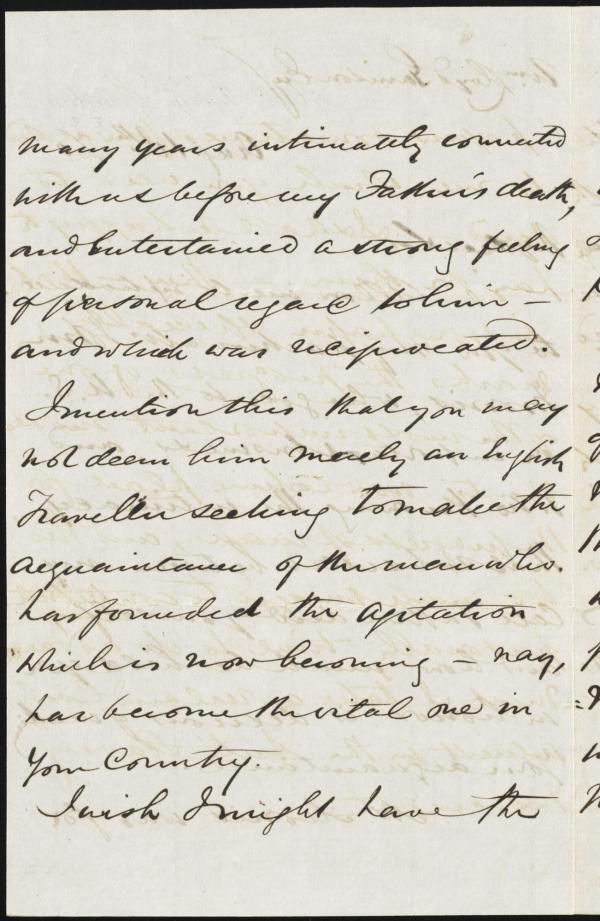 many years intimately connected
with us before my Father's death,
and Entertained a strong feeling
of personal regard to him –
and which was reciprocated.
I mention this that you may
not deem him merely an English
Traveller seeking to make the
acquaintance of the man who
has founded the agitation
which is now becoming – nay,
has become the vital one in
Your Country.
I wish I might have the